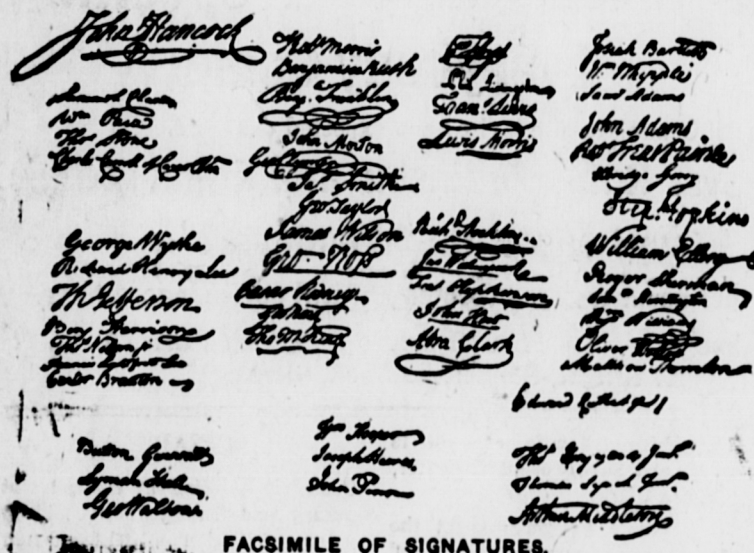 John Hancock
Samuel Chase
Wm Paca
Thos Stone
Charles Carroll of Carrollton
George Wythe
Richard Henry Lee
Th Jefferson
Benj Harrison
Thos Nelson jr
Francis Lightfoot Lee
Carter Braxton
Robt Morris
Benjamin Rush
Benj. Franklin
John Morton
Geo Clymer
Jas Smith
Geo Taylor
James Wilson
Geo Ross
Caesar Rodney
Geo Read
Tho M:Kean
Phil. Livingston
Frans Lewis
Lewis Morris
Richd Stockton
Jno Witherspoon
Fras Hopkinson
John Hart
Abra Clark
Josiah Bartlett
Wm Whipple
Saml Adams
John Adams
Robt Treat Paine
Elbridge Gerry
Step. Hopkins
William Ellery
Roger Sherman
Saml Huntington
Wm Williams
Oliver Wolcott
Matthew Thornton
Edward Rutledge
Button Gwinnett
Lyman Hall
Geo Walton
Wm Hooper
Joseph Hewes
John Penn
Thos Heyward Junr.
Thomas Lynch Junr.
Arthur Middleton
FACSIMILE OF SIGNATURES.